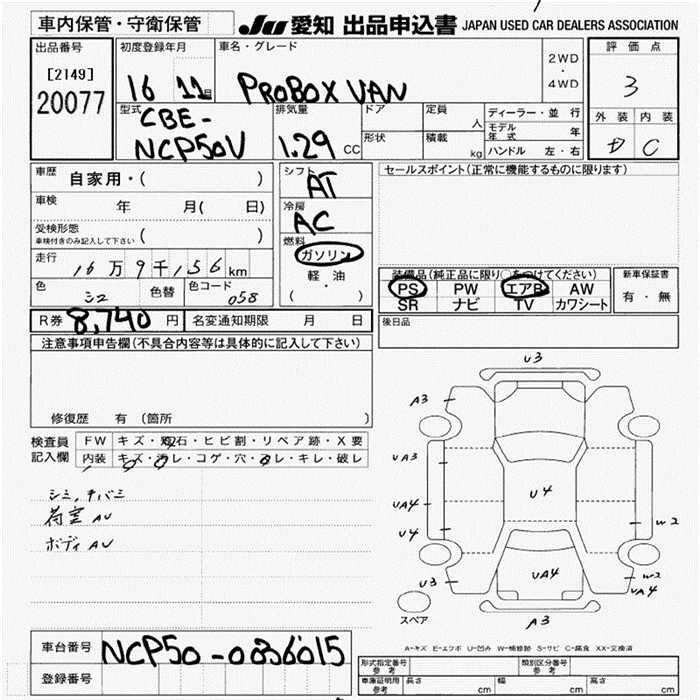 車内保管・守衛保管
JU 愛知 出品申込書 JAPAN USED CAR DEALERS ASSOCIATION
出品番号
[2149]
20077
初度登録年月
16 11
車名・グレード
PROBOX VAN
2WD
・
4WD
評価点
3
外装 内装
D C
型式
CBE-
NCP50V
排気量
1.29 CC
ドア
定員
人
形状
積載
kg
ディーラー・並行
モデル年式 年
ハンドル 左・右
車歴 自家用・( )
車検 年 月( 日)
受検形態
車検付きのみ記入して下さい ( )
走行 16万9千156km
色 シロ 色替 色コード 058
シフト AT
冷房 AC
燃料
ガソリン
軽・油
( ・ )
セールスポイント(正常に機能するものに限ります)
装備品(純正品に限り○をつけてください)
PS PW エアB AW
SR ナビ TV カワシート
新車保証書
有・無
R券 8,740 円 名変通知期限 月 日
後日品
注意事項申告欄(不具合内容等は具体的に記入して下さい)
修復歴 有(箇所 )
検査員
記入欄
FW キズ・飛石・ヒビ割・リペア跡・X要
内装 キズ・汚レ・コゲ・穴・ヌレ・キレ・破レ
シミ,チバミ
荷室 AU
ボディ AU
U3
A3
UA3
UA4
U4
U4
W2
U3
UA4
W2
UA4
A3
スペア
A-キズ E-エクボ U-凹み W-補修跡 S-サビ C-腐食 XX-交換済
車台番号 NCP50-0036015
登録番号
形式指定番号
参考
類別区分番号
参考
車庫証明用
参考
長さ cm 幅 cm 高さ cm